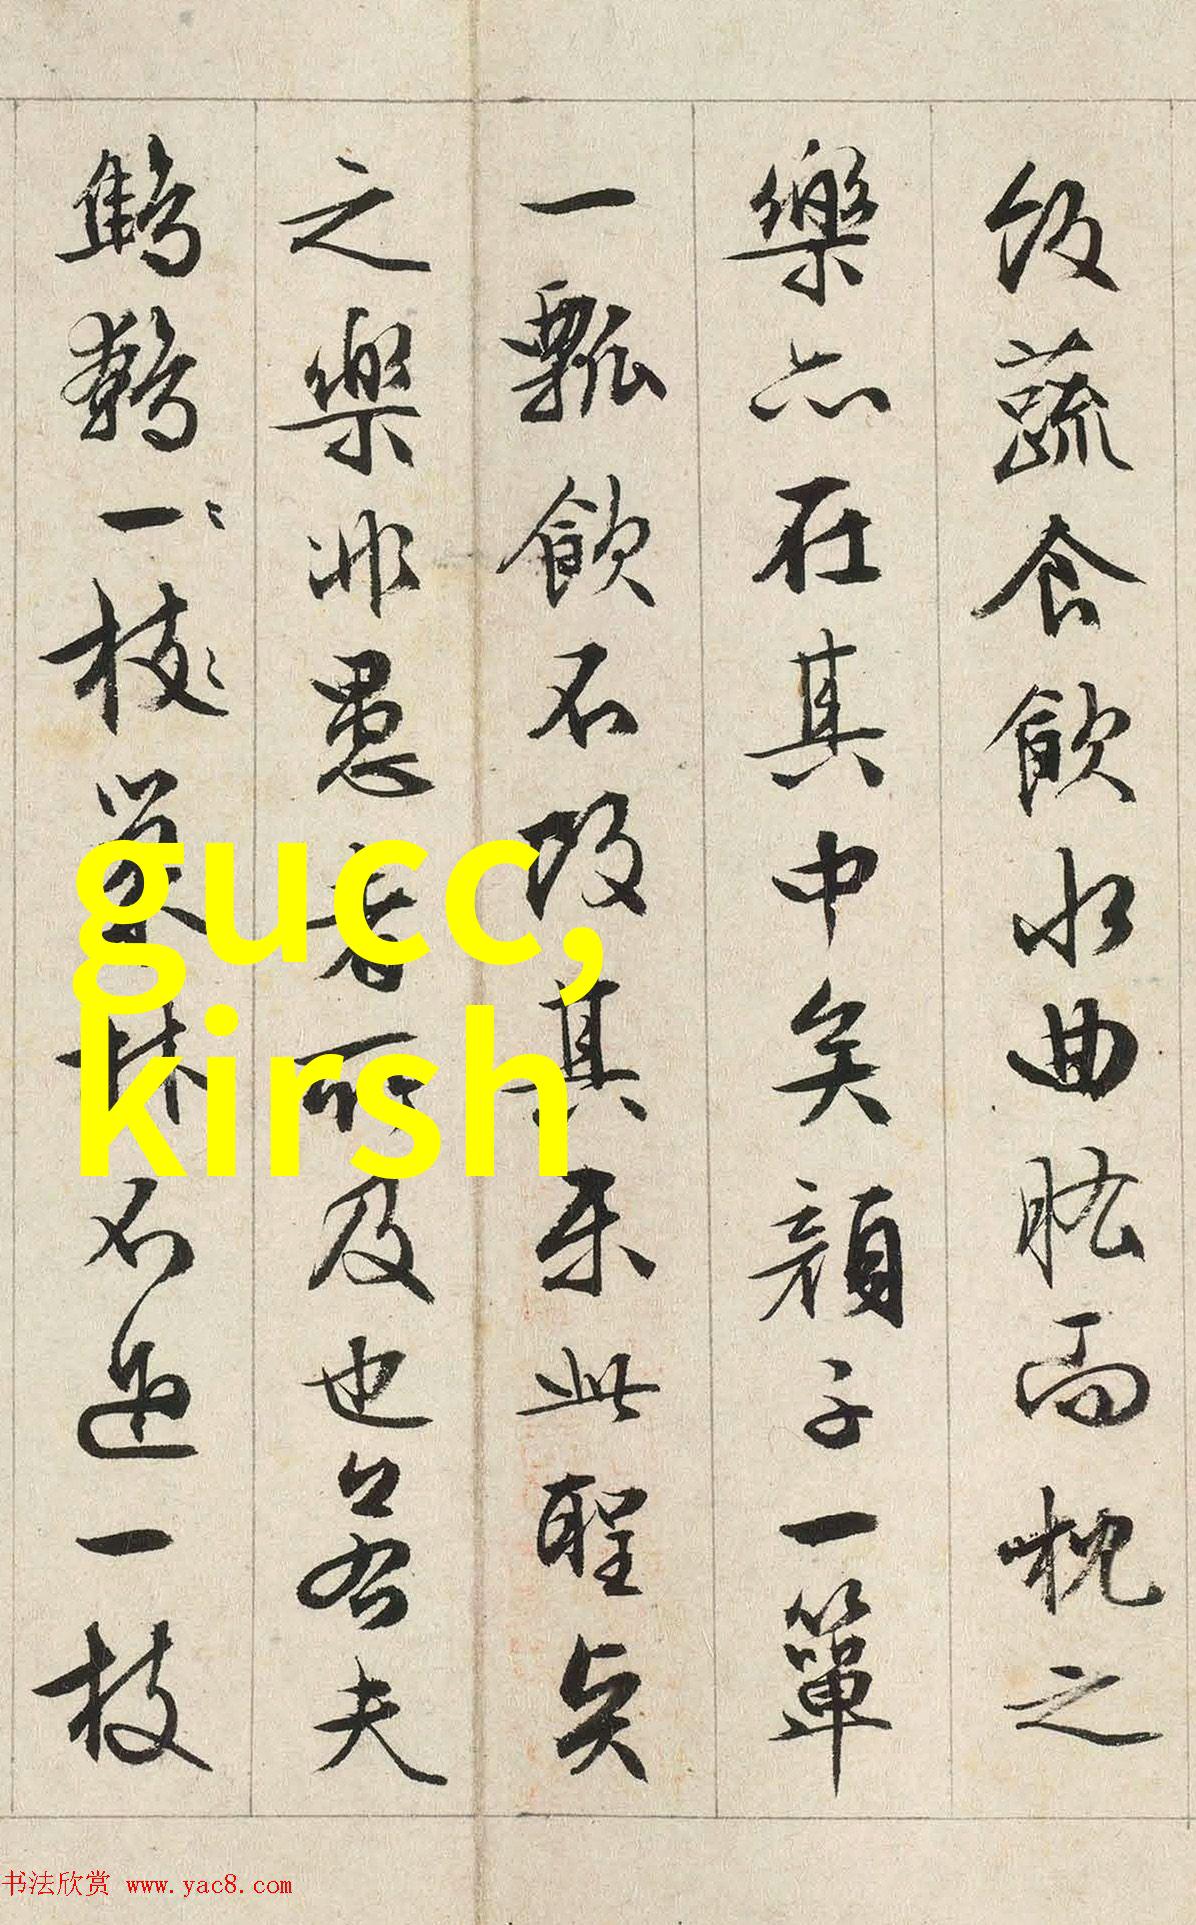 飯蔬食飲水曲肱而枕之
樂亦在其中矣顏子一簞
一瓢飲不改其樂此聖賢
之樂非愚者所及也若夫
鷦鷯一枝巢林不過一枝
gucc,
kirsh
书法欣赏 www.yac8.com